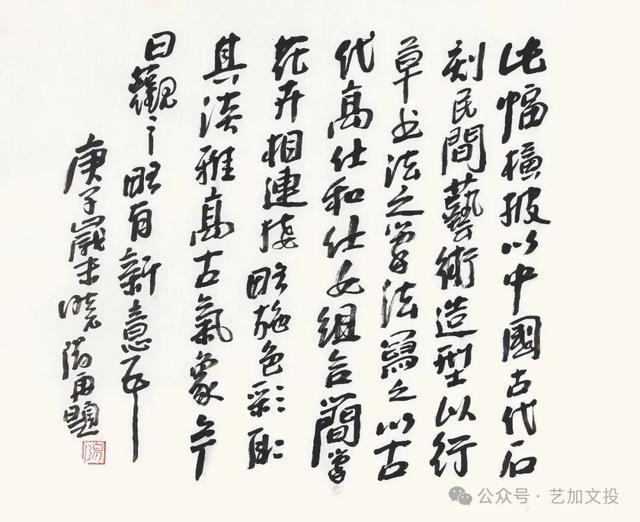 此幅横披以中國古代石
刻民間藝術造型以行
草书法之筆法寫之以古
代高仕和仕女組合間以
花卉相連接略施色彩取
其淡雅高古氣象今
日觀之略有新意耳
庚子歲末曉陽再題
公众号·艺加文投